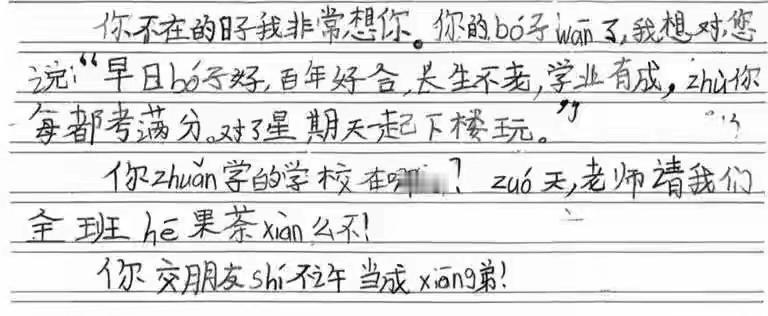 你不在的日子我非常想你。你的bó子wān了,我想对您
说:“早日bó子好,百年好合,长生不老,学业有成,zhù你
每都考满分。对了星期天一起下楼玩。”
你zhuǎn学的学校在哪？zuó天,老师请我们
全班hē果茶xiàn么不!
你交朋友shí不之午当成xiōng弟!